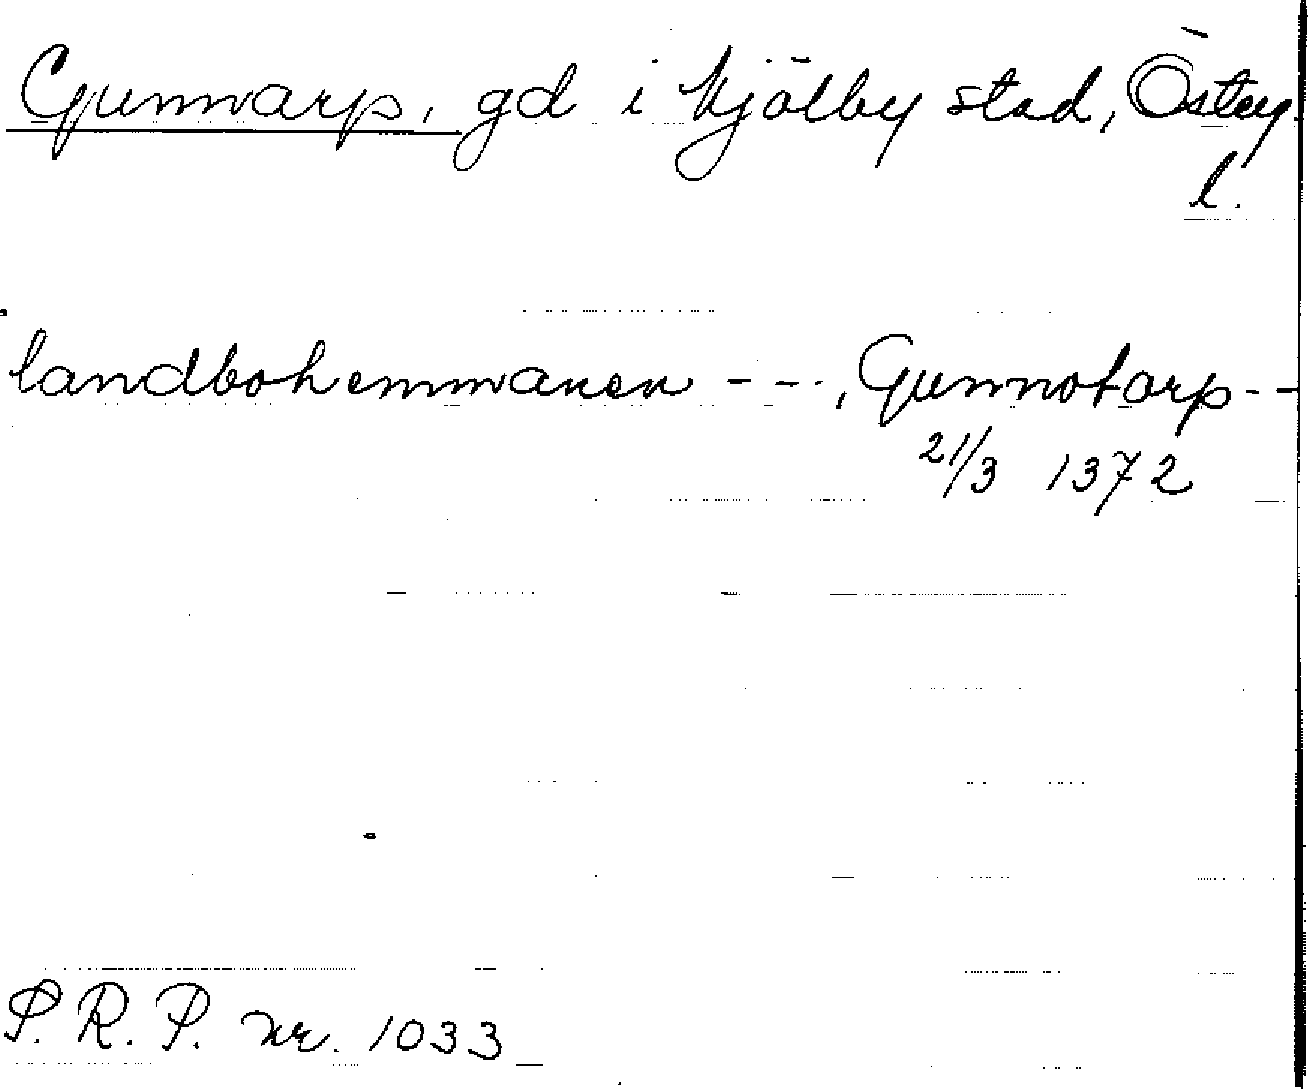 Gunnarp, gd i Mjölby stad, Östерg.
l.
landbohemmanen - - -, Gunnotarp - -
21/3 1372
S. R. P. nr. 1033